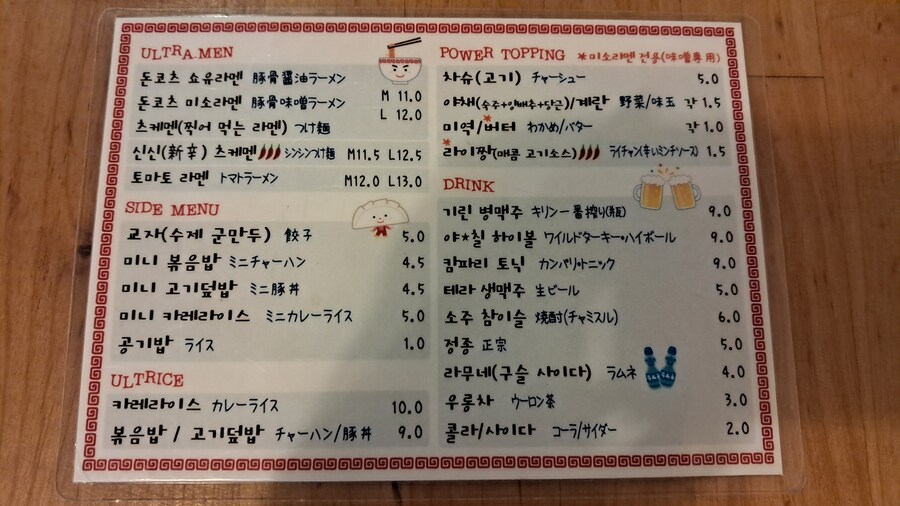 ULTRA.MEN
돈코츠 쇼유라멘 豚骨醤油ラーメン
돈코츠 미소라멘 豚骨味噌ラーメン M 11.0
L 12.0
츠케멘(찍어 먹는 라멘) つけ麺
신신(新辛) 츠케멘 シンシンつけ麺 M11.5 L12.5
토마토 라멘 トマトラーメン M12.0 L13.0
SIDE MENU
교자(수제 군만두) 餃子 5.0
미니 볶음밥 ミニチャーハン 4.5
미니 고기덮밥 ミニ豚丼 4.5
미니 카레라이스 ミニカレーライス 5.0
공기밥 ライス 1.0
ULTRICE
카레라이스 カレーライス 10.0
볶음밥 / 고기덮밥 チャーハン/豚丼 9.0
POWER TOPPING *미소라멘 전용(味噌専用)
차슈(고기) チャーシュー 5.0
야채(숙주+양배추+당근)/계란 野菜/味玉 각 1.5
미역/*버터 わかめ/バター 각 1.0
*라이짱(매콤 고기소스) ライチャン(辛いミンチソース) 1.5
DRINK
기린 병맥주 キリン一番搾り(瓶) 9.0
야★칠 하이볼 ワイルドターキー・ハイボール 9.0
캄파리 토닉 カンパリ・トニック 9.0
테라 생맥주 生ビール 5.0
소주 참이슬 焼酎(チャミスル) 6.0
정종 正宗 5.0
라무네(구슬 사이다) ラムネ 4.0
우롱차 ウーロン茶 3.0
콜라/사이다 コーラ/サイダー 2.0